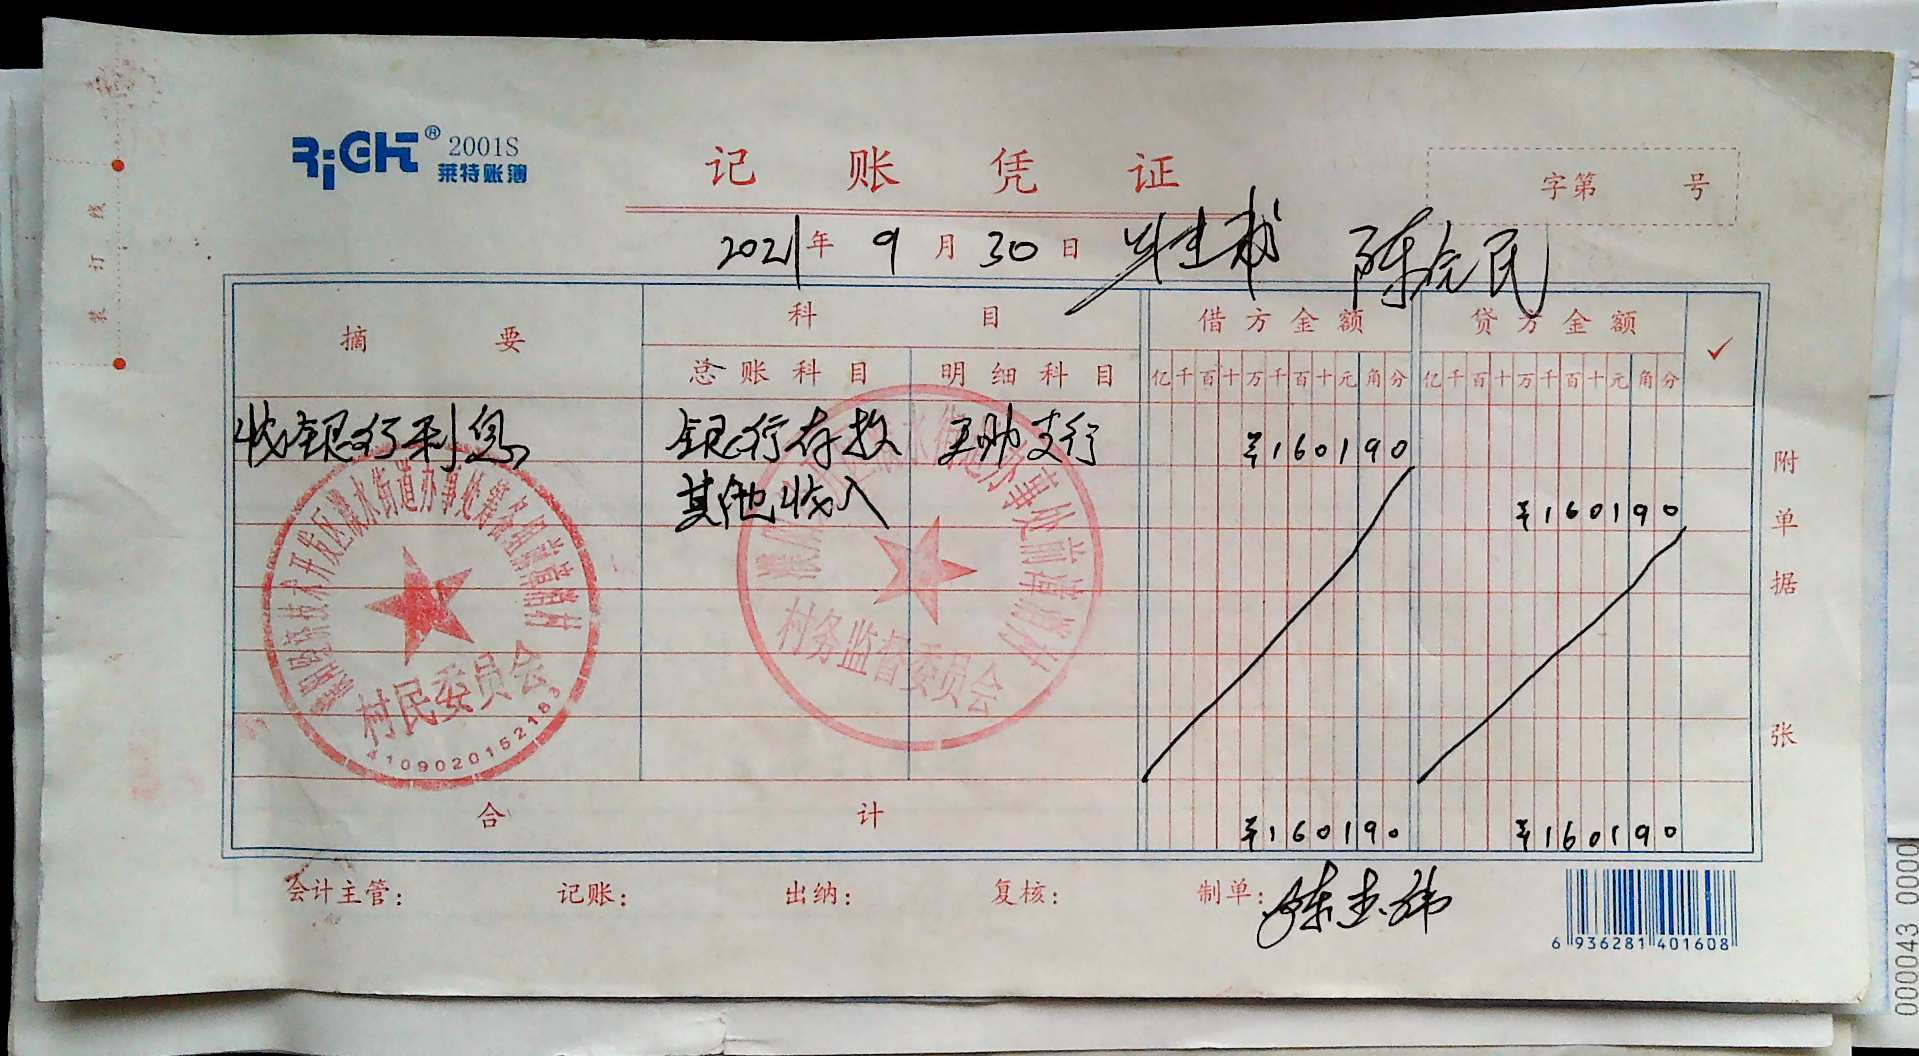 RiGHT® 2001S
莱特账簿
记 账 凭 证
字第 号
2021年 9月 30日 陈
摘 要 科 目 借方金额 贷方金额 ✓
总账科目 明细科目 亿千百十万千百十元角分 亿千百十万千百十元角分
收银行利息 银行存款 支行 ¥160190
其他收入 ¥160190
合 计 ¥160190 ¥160190
附单据 张
会计主管: 记账: 出纳: 复核: 制单: 陈
装订线
技术开发区濮水街道办事处筹备组前草
村民委员会
4109020152183
办事处前草
村务监督委员会
6 936281 401608
000043 0000